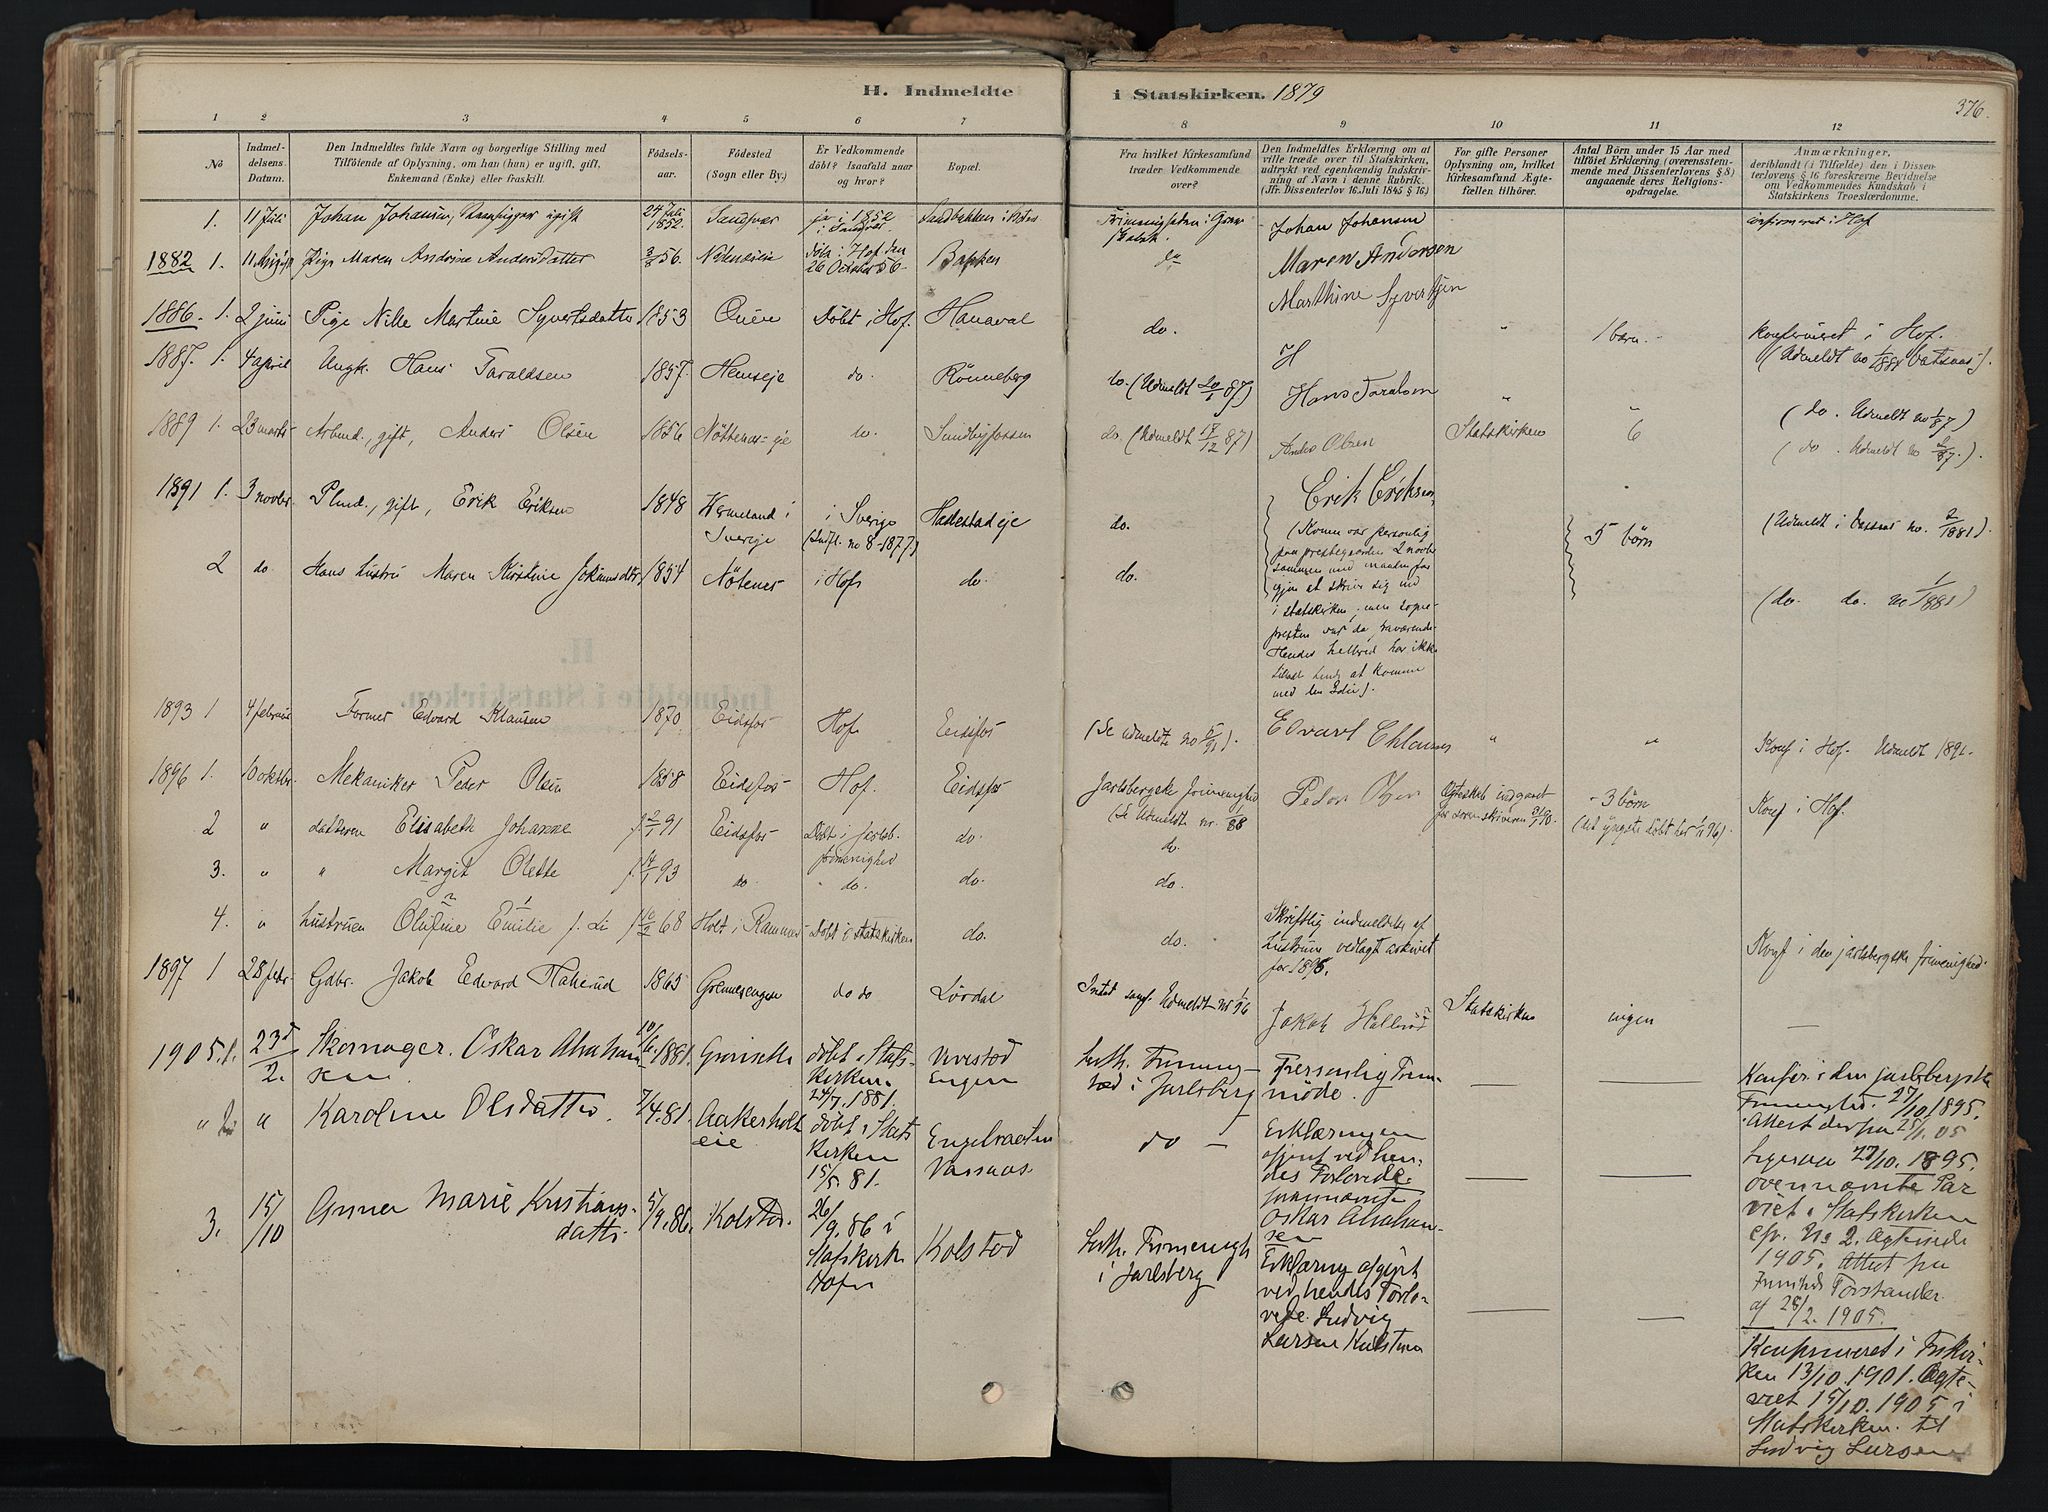 H. Indmeldte i Statskirken. 1879
376.
1 2 3 4 5 6 7 8 9 10 11 12
No
Indmel-
delsens
Datum.
Den Indmeldtes fulde Navn og borgerlige Stilling med
Tilföiende af Oplysning, om han (hun) er ugift, gift,
Enkemand (Enke) eller fraskilt.
Födsels-
aar.
Födested
(Sogn eller By.)
Er Vedkommende
döbt? Isaafald naar
og hvor?
Bopæl.
Fra hvilket Kirkesamfund
træder Vedkommende
over?
Den Indmeldtes Erklæring om at
ville træde over til Statskirken,
udtrykt ved egenhændig Indskriv-
ning af Navn i denne Rubrik.
(Jfr. Dissenterlov 16 Juli 1845 § 16.)
For gifte Personer
Oplysning om, hvilket
Kirkesamfund Ægte-
fællen tilhörer.
Antal Börn under 15 Aar med
tilföiet Erklæring (overensstem-
mende med Dissenterlovens § 8)
angaaende deres Religions-
opdragelse.
Anmærkninger,
deriblandt (i Tilfælde) den i Dissen-
terlovens § 16 foreskrevne Bevidnelse
om Vedkommendes Kundskab i
Statskirkens Troeslærdomme.
1. 11 Juli Johan Johansen, gift 24 Juli 1852. Sandsvær ja i 1852 i Sandsvær Sandbakken i
Johan Johansen confirmeret i Hof
1882 1. Pige Maren Andrine Andersdatter 3/8 56. döbt i Hof den 26 October 56. Bakken do
Maren Andersen
1886. 1. 2 juni Pige Nille Martine Syvertsdatter 1853 Döbt i Hof. Hanaval do. " 1 barn.
Marthine Syvertsen
konfirmeret i Hof.
(Udmeldt no 1/1881 Vassaas).
1887. 1. 4 april Ungk. Hans Taraldsen 1857. Hemseje do. Rönneberg do. (Udmeldt 20/1 87) " "
H
Hans Taralsen
(do. Udmeldt no 1/87)
1889 1. 23 marts Arbmd., gift, Anders Olsen 1856 Nöttenæs-eje do. Sundbyfossen do. (Udmeldt 17/12 87) Anders Olsen Statskirken 6
(do. Udmeldt no 2/87.).
1891 1. 3 novbr. Plmd., gift, Erik Eriksen 1848 Vermeland i Sverige i Sverige (Indfl. no 8-1877) Hadestadeje do.
Erik Eriksen
(Konen var personlig
paa prestegaarden 2 novbr
sammen med manden for
igjen at skrive sig ind
i statskirken, men sogne-
presten var da fraværende.
Hendes helbred har ikke
tilladt hende at komme
med den Idee).
5 börn
(Udmeldt i Vassaas no. 2/1881).
2 do. Hans hustru Maren Kirstine Johannsdtr. 1854 Nötenes i Hof do. do.
(do. do. no 1/1881)
1893 1 4 februar Former Edvard Klausen 1870 Eidsfos Hof Eidsfos
(Se udmeldte no 5/91). " " Konf i Hof. Udmeldt 1891.
1896 1. 10 oktbr. Mekaniker Peder Olsen 1858 Eidsfos Hof. Eidsfos
Jarlsbergske frimenighed
(Se Udmeldte nr. 1/88
Peder Olsen
Ægteskab indgaaet
for sorenskriveren
3 börn
(det yngste döbt her 1/11 96).
Konf i Hof.
2 " datteren Elisabeth Johanne f. 2/1 91 Eidsfos Döbt i Jarlsb. frimenighed do. do.
3. " " Margit Olette f. 14/1 93 do. " do. do. do.
4. " hustruen Olufine Emilie f. Li f. 68 Holt i Ramnes Döbt i statskirken do. do.
Skriftlig indmeldelse af
hustruen vedlagt arkivet
for 1896.
Konf i den jarlsbergske frimenighed.
1897 1 28 febr. Gdbr. Jakob Edvard Hallerud 1865 do do Lördal
Udmeldt nr 1/96
Jakob Statskirken ingen —
1905. 1. 23d/2. Skomager. Oskar Abraham
sen. 10/6. 1881. döbt i Stats-
kirken.
24/7. 1881.
Vivestad
Engen
Luth. Frimenig-
hed i Jarlsberg
Personlig Frem-
möde.
Konfir. i den jarlsbergske
Frimenighed. 27/10. 1895.
Attest derfra 25/1. 05
" 2. " Karoline Olsdatter. 7/4. 81. Aakerholt
eie
döbt i Stats
kirken
15/5. 81.
Vassaas.
do —
Erklæringen
afgivet ved hen-
des Forlovede.
fornævnte
Oskar Abraham-
sen
Ligesaa 27/10. 1895.
ovennævnte Par
viet i Statskirken
cfr. No 2. Ægteviede
1905. Attest fra
Frimheds Forstander
af 28/2. 1905.
3. 15/10 Anna Marie Kristians-
datter. 5/9. 86. Kolstad.
26/9. 86 i
Statskirk
Hof
Kolstad
Luth. Frimenigh
i Jarlsberg
Erklæring afgivet
ved hendes Forlo-
vede. Ludvig
Larsen
Konfirmeret i Frikir-
ken 13/10. 1901. Ægte-
viet 15/10. 1905 i
Statskirken. til
Ludvig Larsen